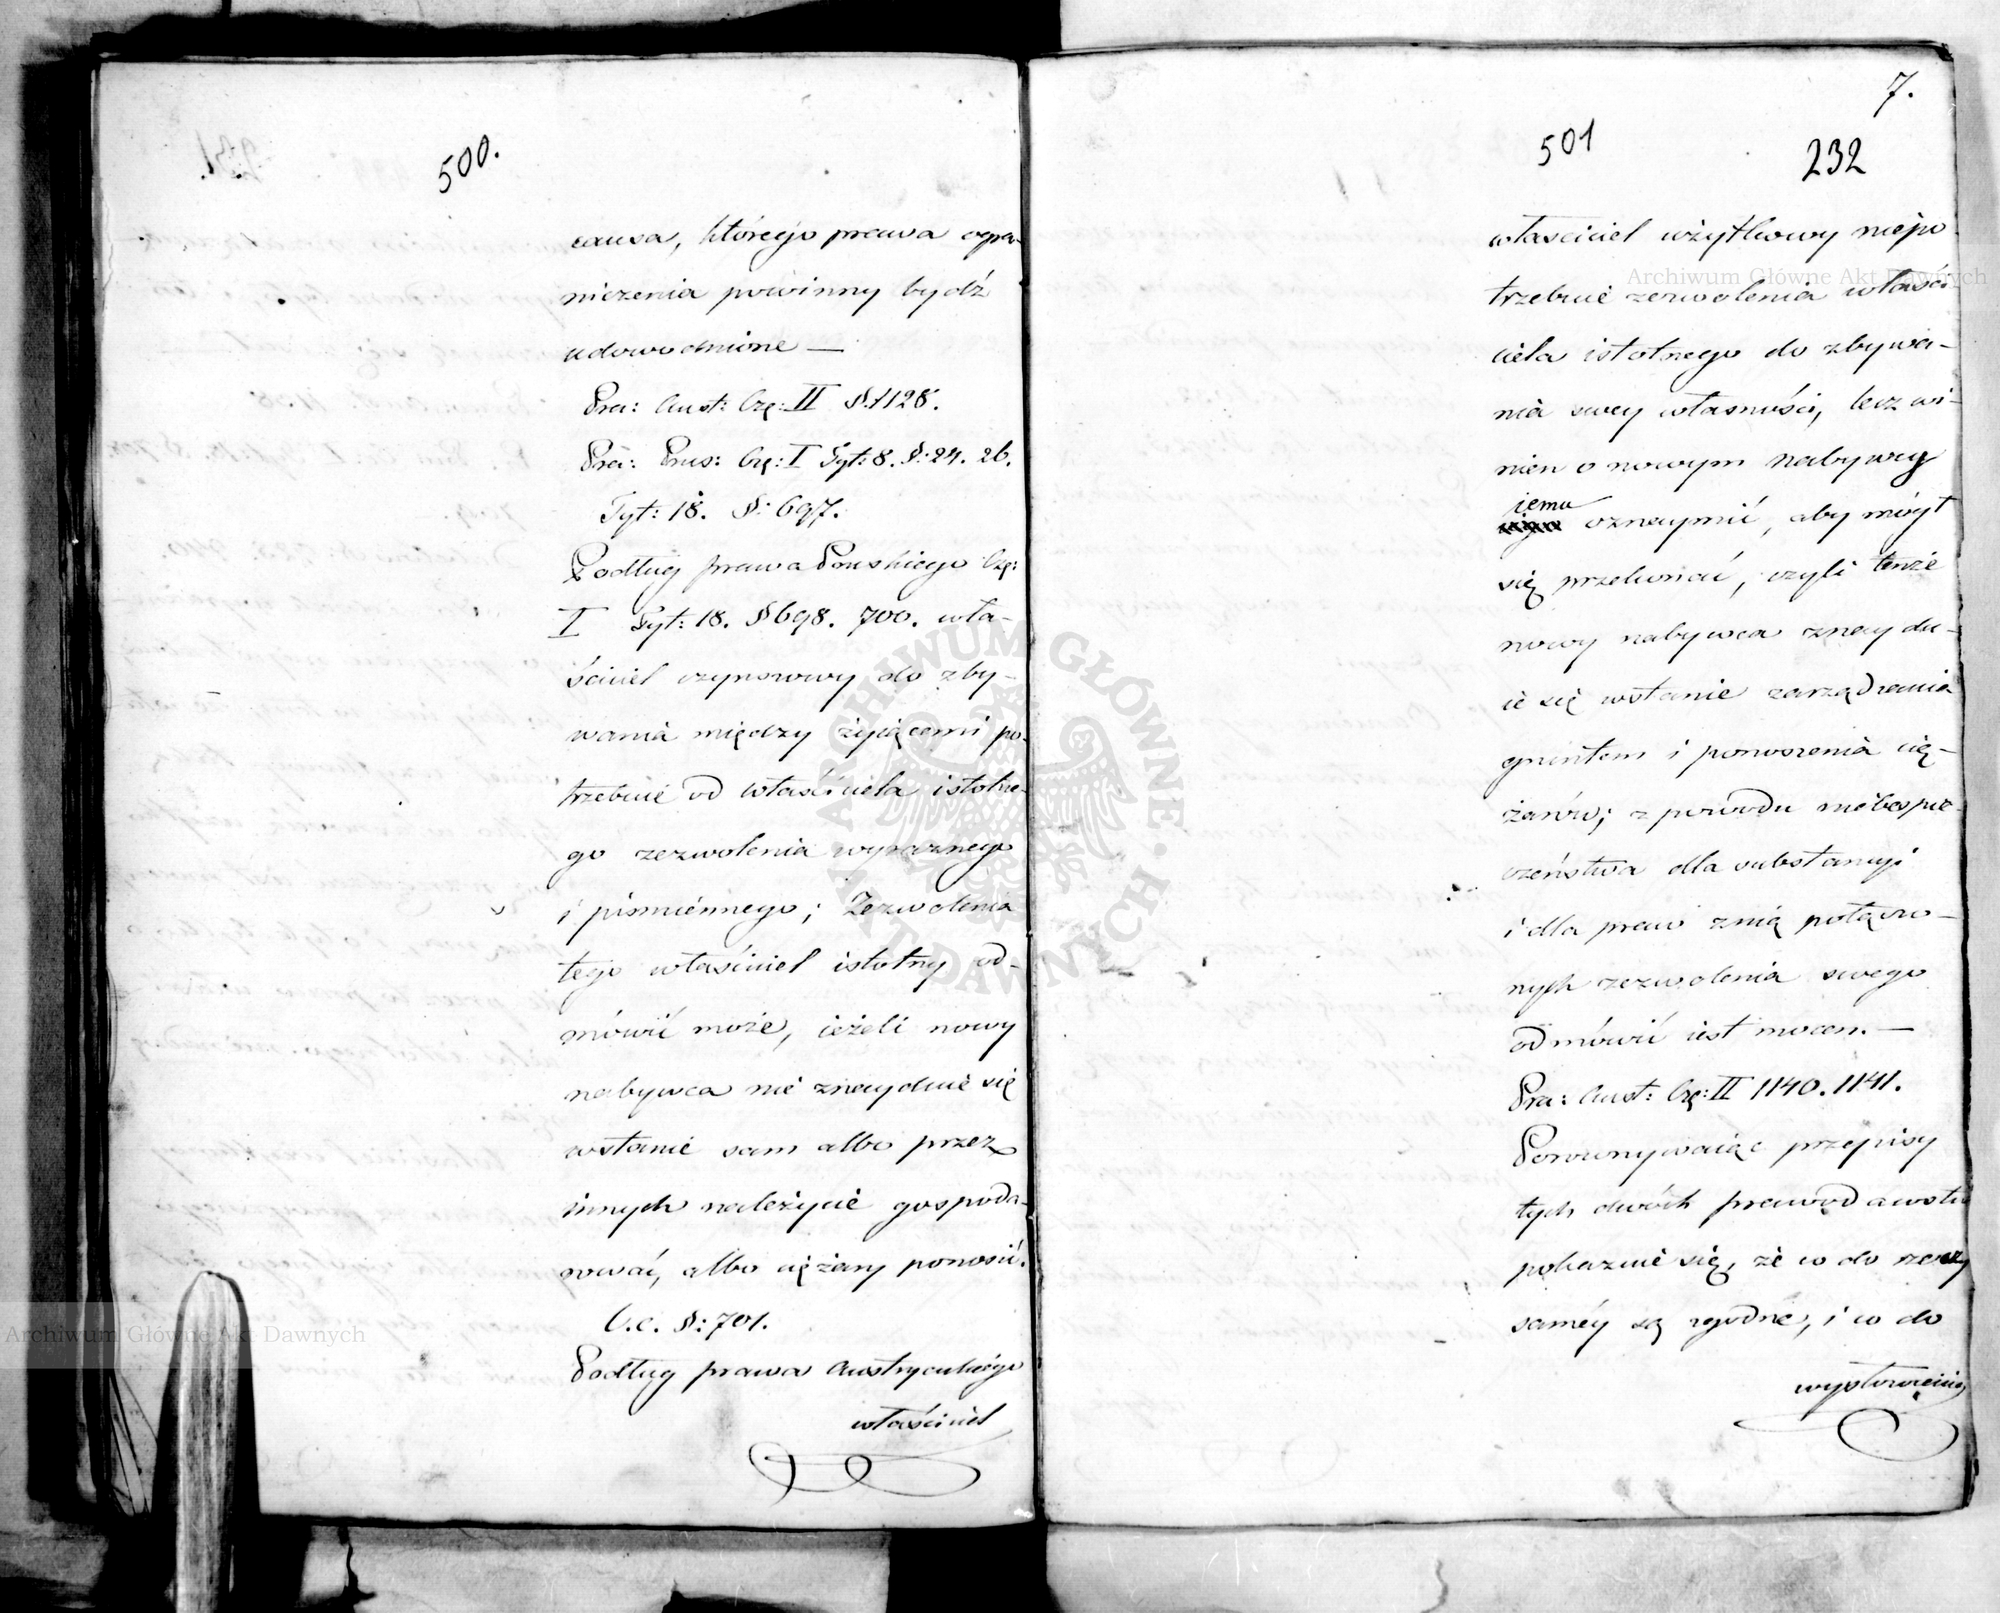 500.
causa, którego prawa ogra-
niczenia powinny bydź
udowodnione —
Pra: Aust: Czę: II §. 1128.
Pra: Prus: Czę: I Tyt: 8. §: 24. 26.
Tyt: 18. §: 697.
Podług prawa Pruskiego Czę:
I Tyt: 18. § 698. 700. wła-
ściciel czynszowy do zby-
wania między żyiącemi po-
trzebuie od właściciela istotne-
go zezwolenia wyraznego
i pismiennego; Zezwolenia
tego właściciel istotny od-
mówić może, ieżeli nowy
nabywca nie znayduie się
wstanie sam albo przez
innych należycie gospoda-
rować, albo ciężary ponosić.
l.c. §: 701.
Podług prawa Austryackiego
właściciel
7.
501
232
własciciel użytkowy niepo-
trzebuie zezwolenia właści-
ciela istotnego do zbywa-
nia swey własności, lecz wi-
nien o nowym nabywcy
iemu
oznaymić, aby mógł
się przekonać, czyli tenże
nowy nabywca znaydu-
ie się wstanie zarządzania
gruntem i ponoszenia cię-
żarów; z powodu niebespie-
czeństwa dla substancyi
i dla praw znią połączo-
nych zezwolenia swego
odmówić iest mocen. —
Pra: Aust: Czę: II 1140. 1141.
Porównywaiąc przepisy
tych dwóch prawodawstw
pokazuie się, że co do rzeczy
saméy są zgodne, i co do
wysłowienia
Archiwum Główne Akt Dawnych
Archiwum Główne Akt Dawnych
ARCHIWUM GŁÓWNE AKT DAWNYCH